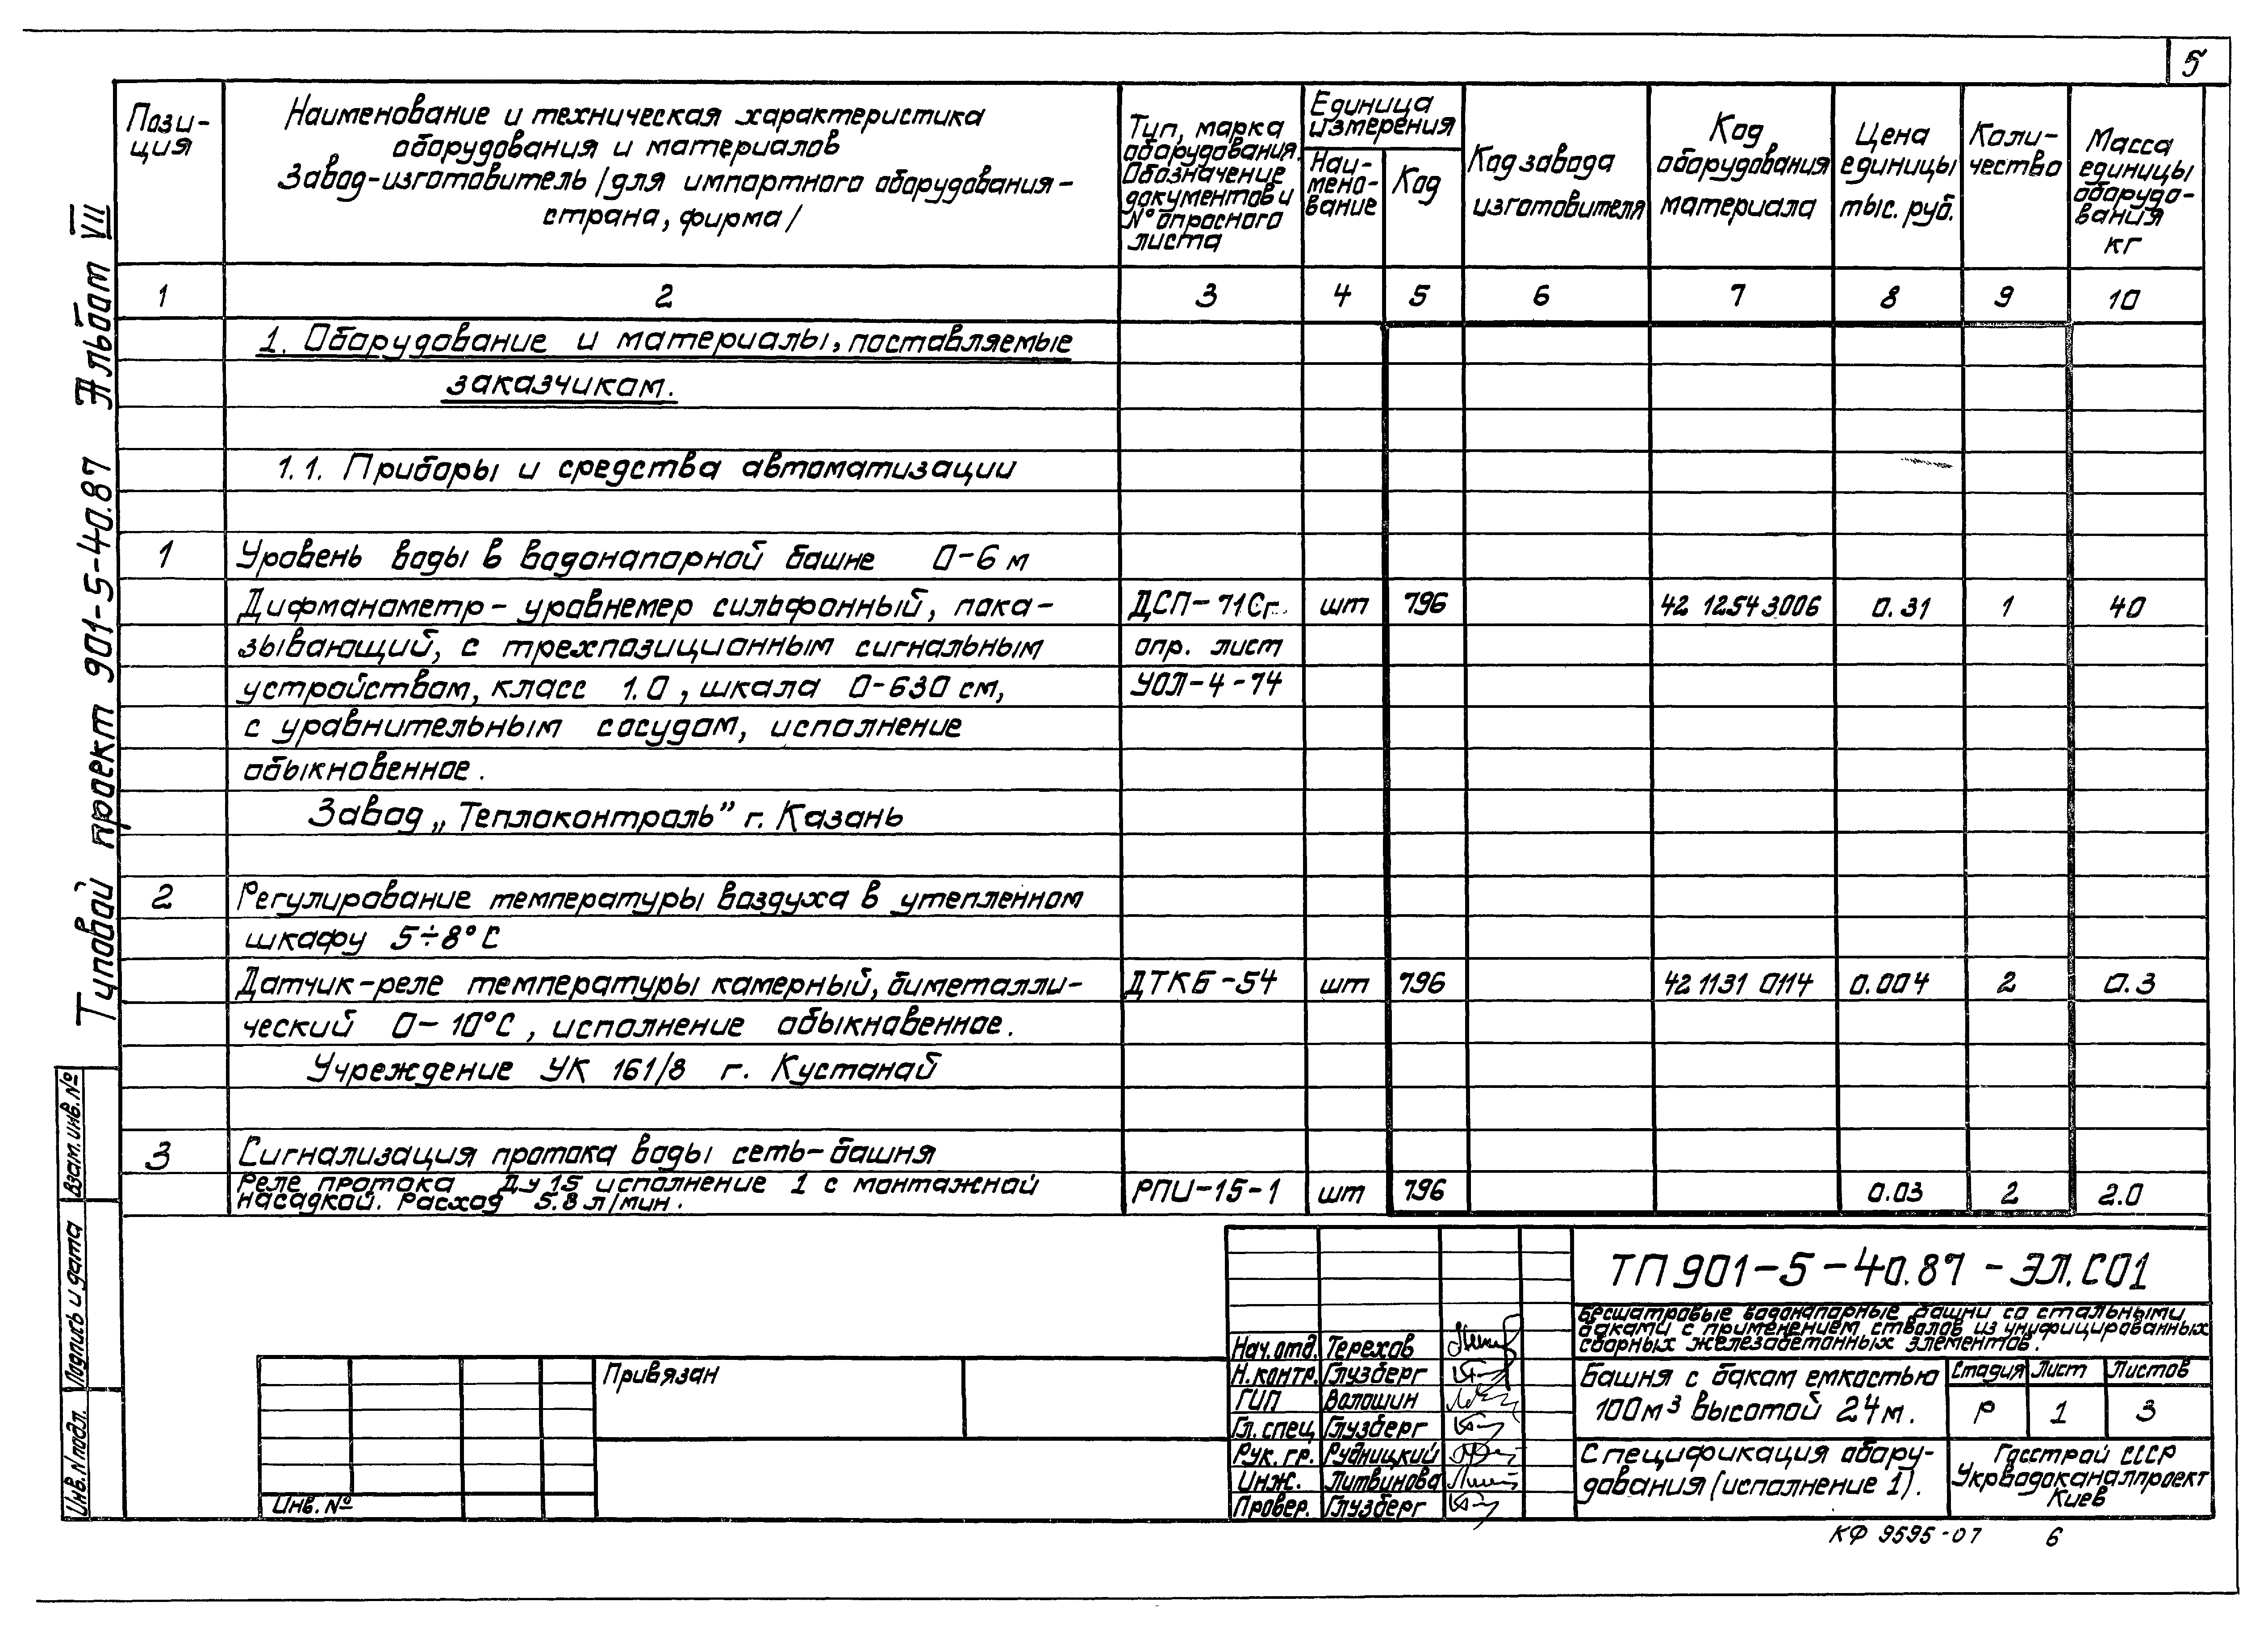 5
Пози-
ция
Наименование и техническая характеристика
оборудования и материалов
Завод-изготовитель /для импортного оборудования-
страна, фирма/
Тип, марка
оборудования.
Обозначение
документов и
№ опросного
листа
Единица
измерения
Наи-
мено-
вание
Код
Код завода
изготовителя
Код
оборудования
материала
Цена
единицы
тыс. руб.
Коли-
чество
Масса
единицы
оборудо-
вания
кг
1 2 3 4 5 6 7 8 9 10
1. Оборудование и материалы, поставляемые
заказчиком.
1.1. Приборы и средства автоматизации
1 Уровень воды в водонапорной башне 0-6 м
Дифманометр-уровнемер сильфонный, пока- ДСП-71Сг. шт 796 42 1254 3006 0.31 1 40
зывающий, с трехпозиционным сигнальным опр. лист
устройством, класс 1.0, шкала 0-630 см, УОЛ-4-74
с уравнительным сосудом, исполнение
обыкновенное.
Завод „Теплоконтроль" г. Казань
2 Регулирование температуры воздуха в утепленном
шкафу 5÷8°С
Датчик-реле температуры камерный, биметалли- ДТКБ-54 шт 796 42 1131 0114 0.004 2 0.3
ческий 0-10°С, исполнение обыкновенное.
Учреждение УК 161/8 г. Кустанай
3 Сигнализация протока воды сеть-башня
Реле протока Ду 15 исполнение 1 с монтажной
насадкой. Расход 5.8 л/мин. РПИ-15-1 шт 796 0.03 2 2.0
Типовой проект 901-5-40.87 Альбом VII
Взам. инв. №
Подпись и дата
Инв. № подл.
Привязан
Инв. №
Нач. отд. Терехов
Н. контр. Глузберг
ГИП Волошин
Гл. спец Глузберг
Рук. гр. Рудницкий
Инж. Литвинова
Провер. Глузберг
ТП 901-5-40.87 - ЭЛ.СО1
Бесшатровые водонапорные башни со стальными
баками с применением стволов из унифицированных
сборных железобетонных элементов.
Башня с баком емкостью
100м³ высотой 24м.
Стадия Лист Листов
Р 1 3
Спецификация обору-
дования (исполнение 1).
Госстрой СССР
Укрводоканалпроект
Киев
КФ 9595-07 6